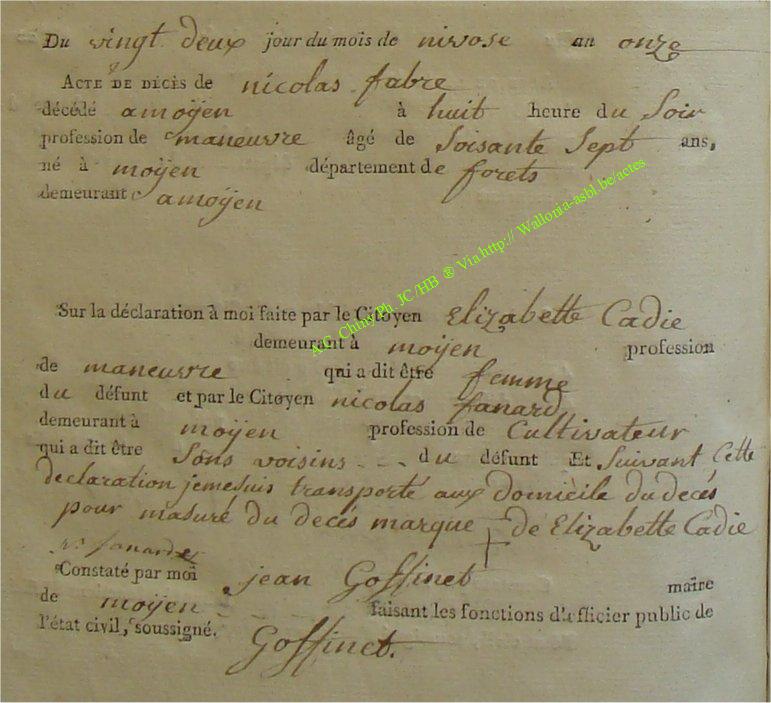 Du vingt deux jour du mois de nivose an onze
ACTE DE DÉCÈS de nicolas fabre
décédé a moÿen à huit heure du Soir
profession de maneuvre âgé de Soisante Sept ans,
né à moÿen département de forets
demeurant a moÿen
A.G. Chiny Ph. JC/HB ® Via http:// Wallonia-asbl.be/actes
Sur la déclaration à moi faite par le Citoyen Elizabette Cadie
demeurant à moÿen profession
de maneuvre qui a dit être femme
du défunt et par le Citoyen nicolas fanard
demeurant à moÿen profession de Cultivateur
qui a dit être Sons voisins - - du défunt Et Suivant Cette
declaration jemesuis transporté aux domicile du decés
pour masuré du decés marque de Elizabette Cadie
fanard
Constaté par moi jean Goffinet maire
de moÿen faisant les fonctions d'officier public de
l'état civil, soussigné. Goffinet.